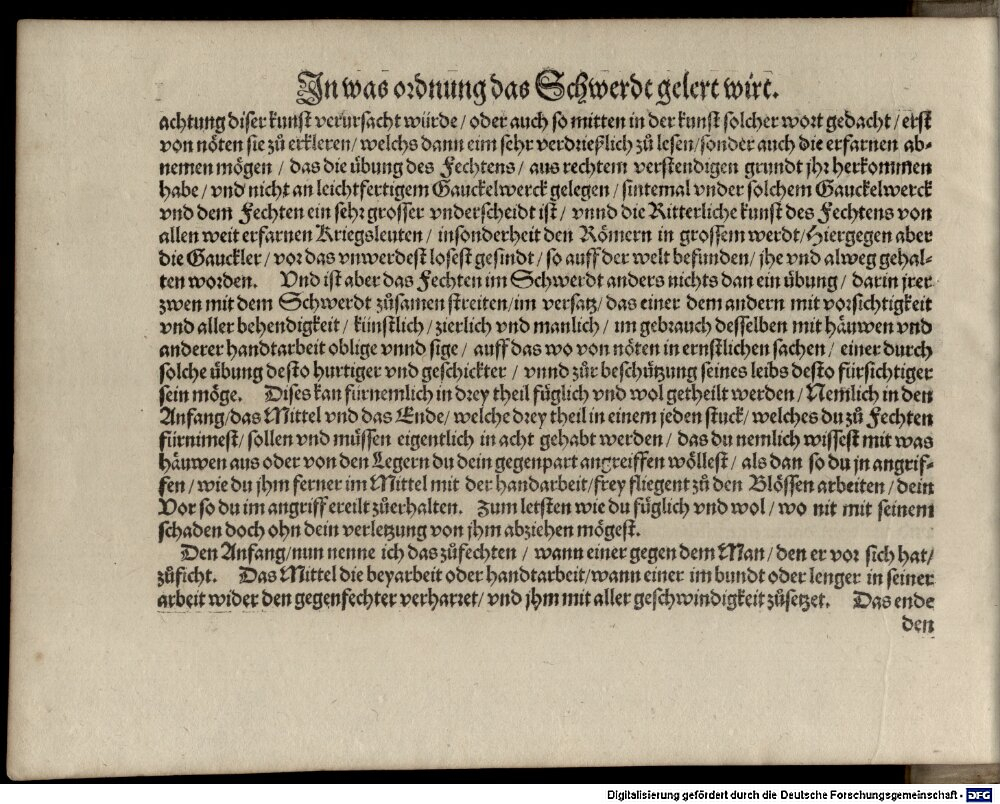 In was ordnung das Schwerdt gelert wirt.
achtung diser kunst verursacht würde / oder auch so mitten in der kunst solcher wort gedacht / erst
von nöten sie zů erkleren / welchs dann eim sehr verdrießlich zů lesen / sonder auch die erfarnen ab-
nemen mögen / das die übung des Fechtens / aus rechtem verstendigen grundt jhr herkommen
habe / vnd nicht an leichtfertigem Gauckelwerck gelegen / sintemal vnder solchem Gauckelwerck
vnd dem Fechten ein sehr grosser vnderscheidt ist / vnnd die Ritterliche kunst des Fechtens von
allen weit erfarnen Kriegsleuten / insonderheit den Römern in grossem werdt / Hiergegen aber
die Gauckler / vor das vnwerdest losest gesindt / so auff der welt befunden / jhe vnd alweg gehal-
ten worden. Vnd ist aber das Fechten im Schwerdt anders nichts dan ein übung / darin jrer
zwen mit dem Schwerdt zůsamen streiten / im versatz / das einer dem andern mit vorsichtigkeit
vnd aller behendigkeit / künstlich / zierlich vnd manlich / im gebrauch desselben mit häuwen vnd
anderer handtarbeit oblige vnnd sige / auff das wo von nöten in ernstlichen sachen / einer durch
solche übung desto hurtiger vnd geschickter / vnnd zůr beschützung seines leibs desto fürsichtiger
sein möge. Dises kan fürnemlich in drey theil füglich vnd wol getheilt werden / Nemlich in den
Anfang / das Mittel vnd das Ende / welche drey theil in einem jeden stuck / welches du zů Fechten
fürnimest / sollen vnd müssen eigentlich in acht gehabt werden / das du nemlich wissest mit was
häuwen aus oder von den Legern du dein gegenpart angreiffen wöllest / als dan so du jn angrif-
fen / wie du jhm ferner im Mittel mit der handarbeit / frey fliegent zů den Blössen arbeiten / dein
Vor so du im angriff ereilt zůerhalten. Zum letsten wie du füglich vnd wol / wo nit mit seinem
schaden doch ohn dein verletzung von jhm abziehen mögest.
Den Anfang / nun nenne ich das zůfechten / wann einer gegen dem Man / den er vor sich hat /
zůficht. Das Mittel die beyarbeit oder handtarbeit / wann einer im bundt oder lenger in seiner
arbeit wider den gegenfechter verharret / vnd jhm mit aller geschwindigkeit zůsetzet. Das ende
den
Digitalisierung gefördert durch die Deutsche Forschungsgemeinschaft - DFG